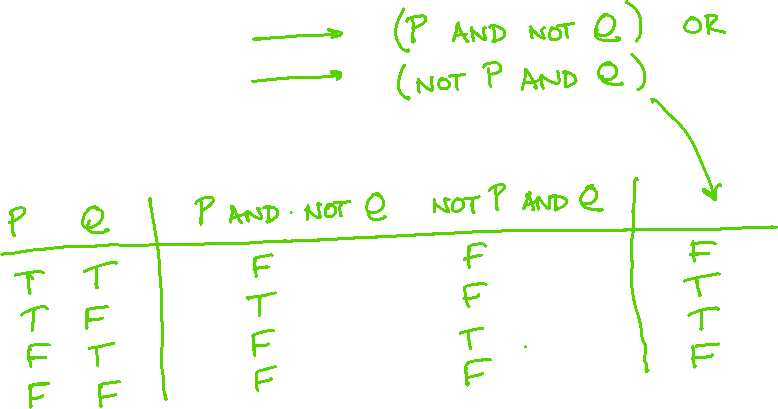 (P AND NOT Q) OR
(NOT P AND Q)
P Q P AND NOT Q NOT P AND Q
T T F F F
T F T F T
F T F T T
F F F F F